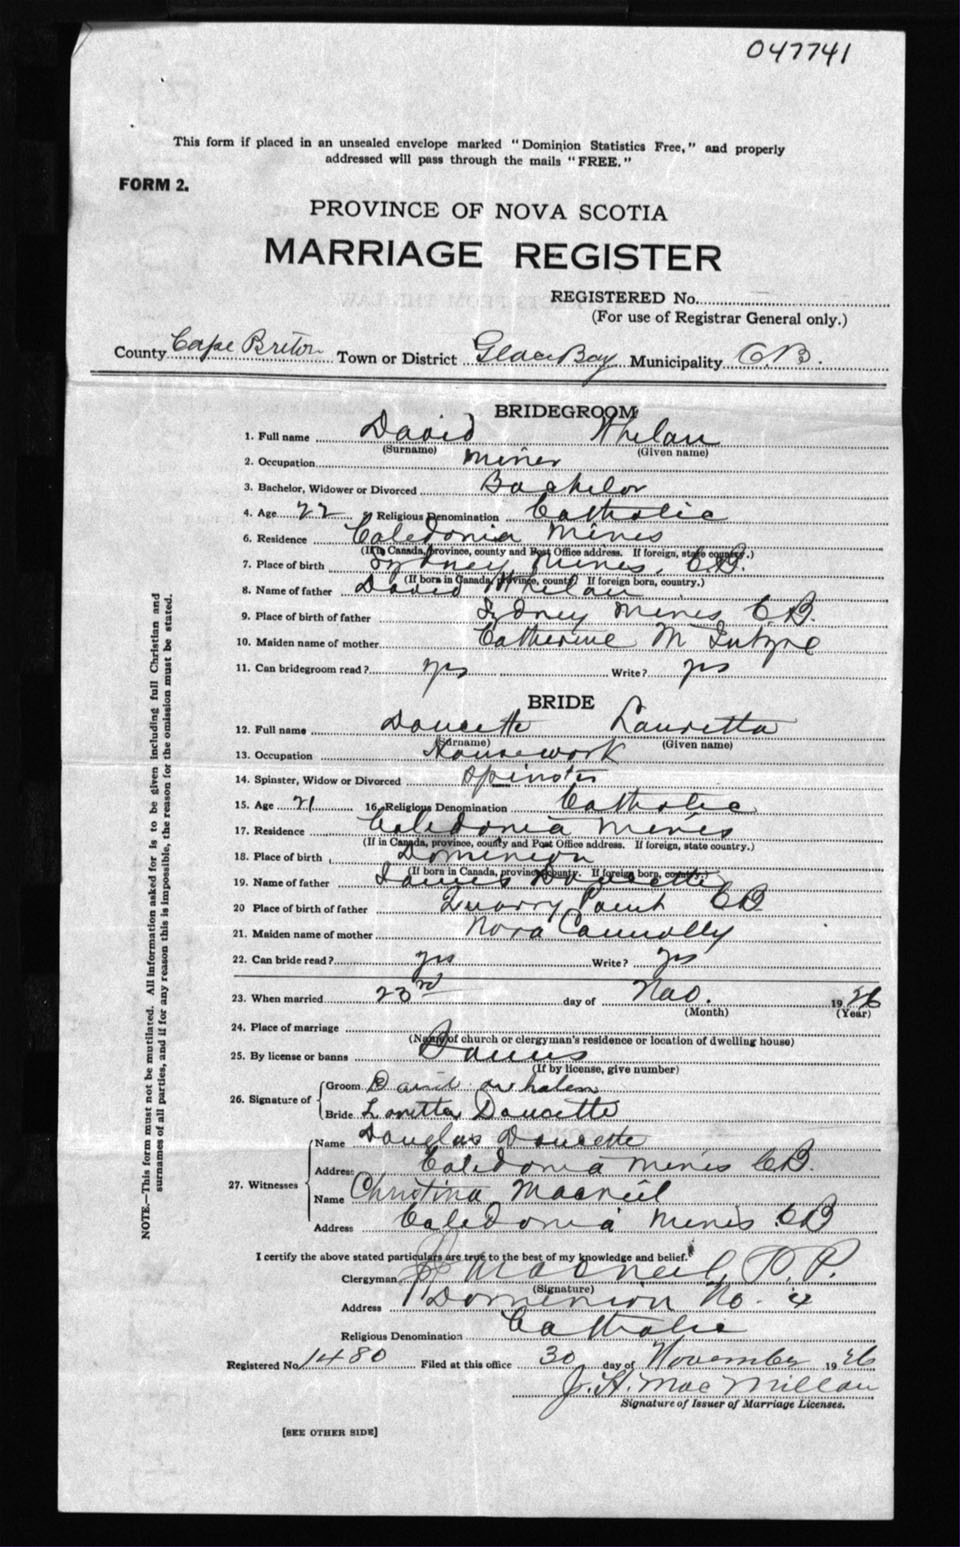 047741
This form if placed in an unsealed envelope marked "Dominion Statistics Free," and properly
addressed will pass through the mails "FREE."
FORM 2.
PROVINCE OF NOVA SCOTIA
MARRIAGE REGISTER
REGISTERED No.
(For use of Registrar General only.)
County Cape Breton Town or District Glace Bay Municipality C.B.
BRIDEGROOM
1. Full name David Whelan
(Surname) (Given name)
2. Occupation Miner
3. Bachelor, Widower or Divorced Bachelor
4. Age 22 5 Religious Denomination Catholic
6. Residence Caledonia Mines
(If in Canada, province, county and Post Office address. If foreign, state country.)
7. Place of birth Sydney Mines, C.B.
(If born in Canada, province, county. If foreign born, country.)
8. Name of father David Whelan
9. Place of birth of father Sydney Mines C.B.
10. Maiden name of mother Catherine McIntyre
11. Can bridegroom read? yes Write? yes
BRIDE
12. Full name Doucette Lauretta
(Surname) (Given name)
13. Occupation Housework
14. Spinster, Widow or Divorced Spinster
15. Age 21 16. Religious Denomination Catholic
17. Residence Caledonia Mines
(If in Canada, province, county and Post Office address. If foreign, state country.)
18. Place of birth Dominion
(If born in Canada, province, county. If foreign born, country.)
19. Name of father James Doucette
20 Place of birth of father Quarry Point CB
21. Maiden name of mother Nora Connolly
22. Can bride read? yes Write? yes
23. When married 23rd day of Nov. 1926
(Month) (Year)
24. Place of marriage
(Name of church or clergyman's residence or location of dwelling house)
25. By license or banns Banns
(If by license, give number)
26. Signature of Groom David whalen
Bride Loretta Doucette
27. Witnesses Name Douglas Doucette
Address Caledonia Mines C.B.
Name Christina Macneil
Address Caledonia Mines C.B
I certify the above stated particulars are true to the best of my knowledge and belief.
Clergyman MacNeil, P.P.
(Signature)
Address Dominion No. 4
Religious Denomination Catholic
Registered No. 1480 Filed at this office 30 day of November 1926
J. H. MacMillan
Signature of Issuer of Marriage Licenses.
[SEE OTHER SIDE]
NOTE.—This form must not be mutilated. All information asked for is to be given including full Christian and
surnames of all parties, and if for any reason this is impossible, the reason for the omission must be stated.